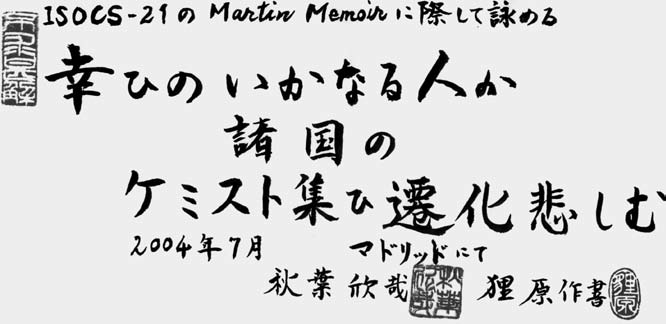 ISOCS-21の Martin Memoirに際して詠める
幸ひのいかなる人か
諸国の
ケミスト集ひ遷化悲しむ
2004年7月 マドリッドにて
秋葉欣哉 狸原作書